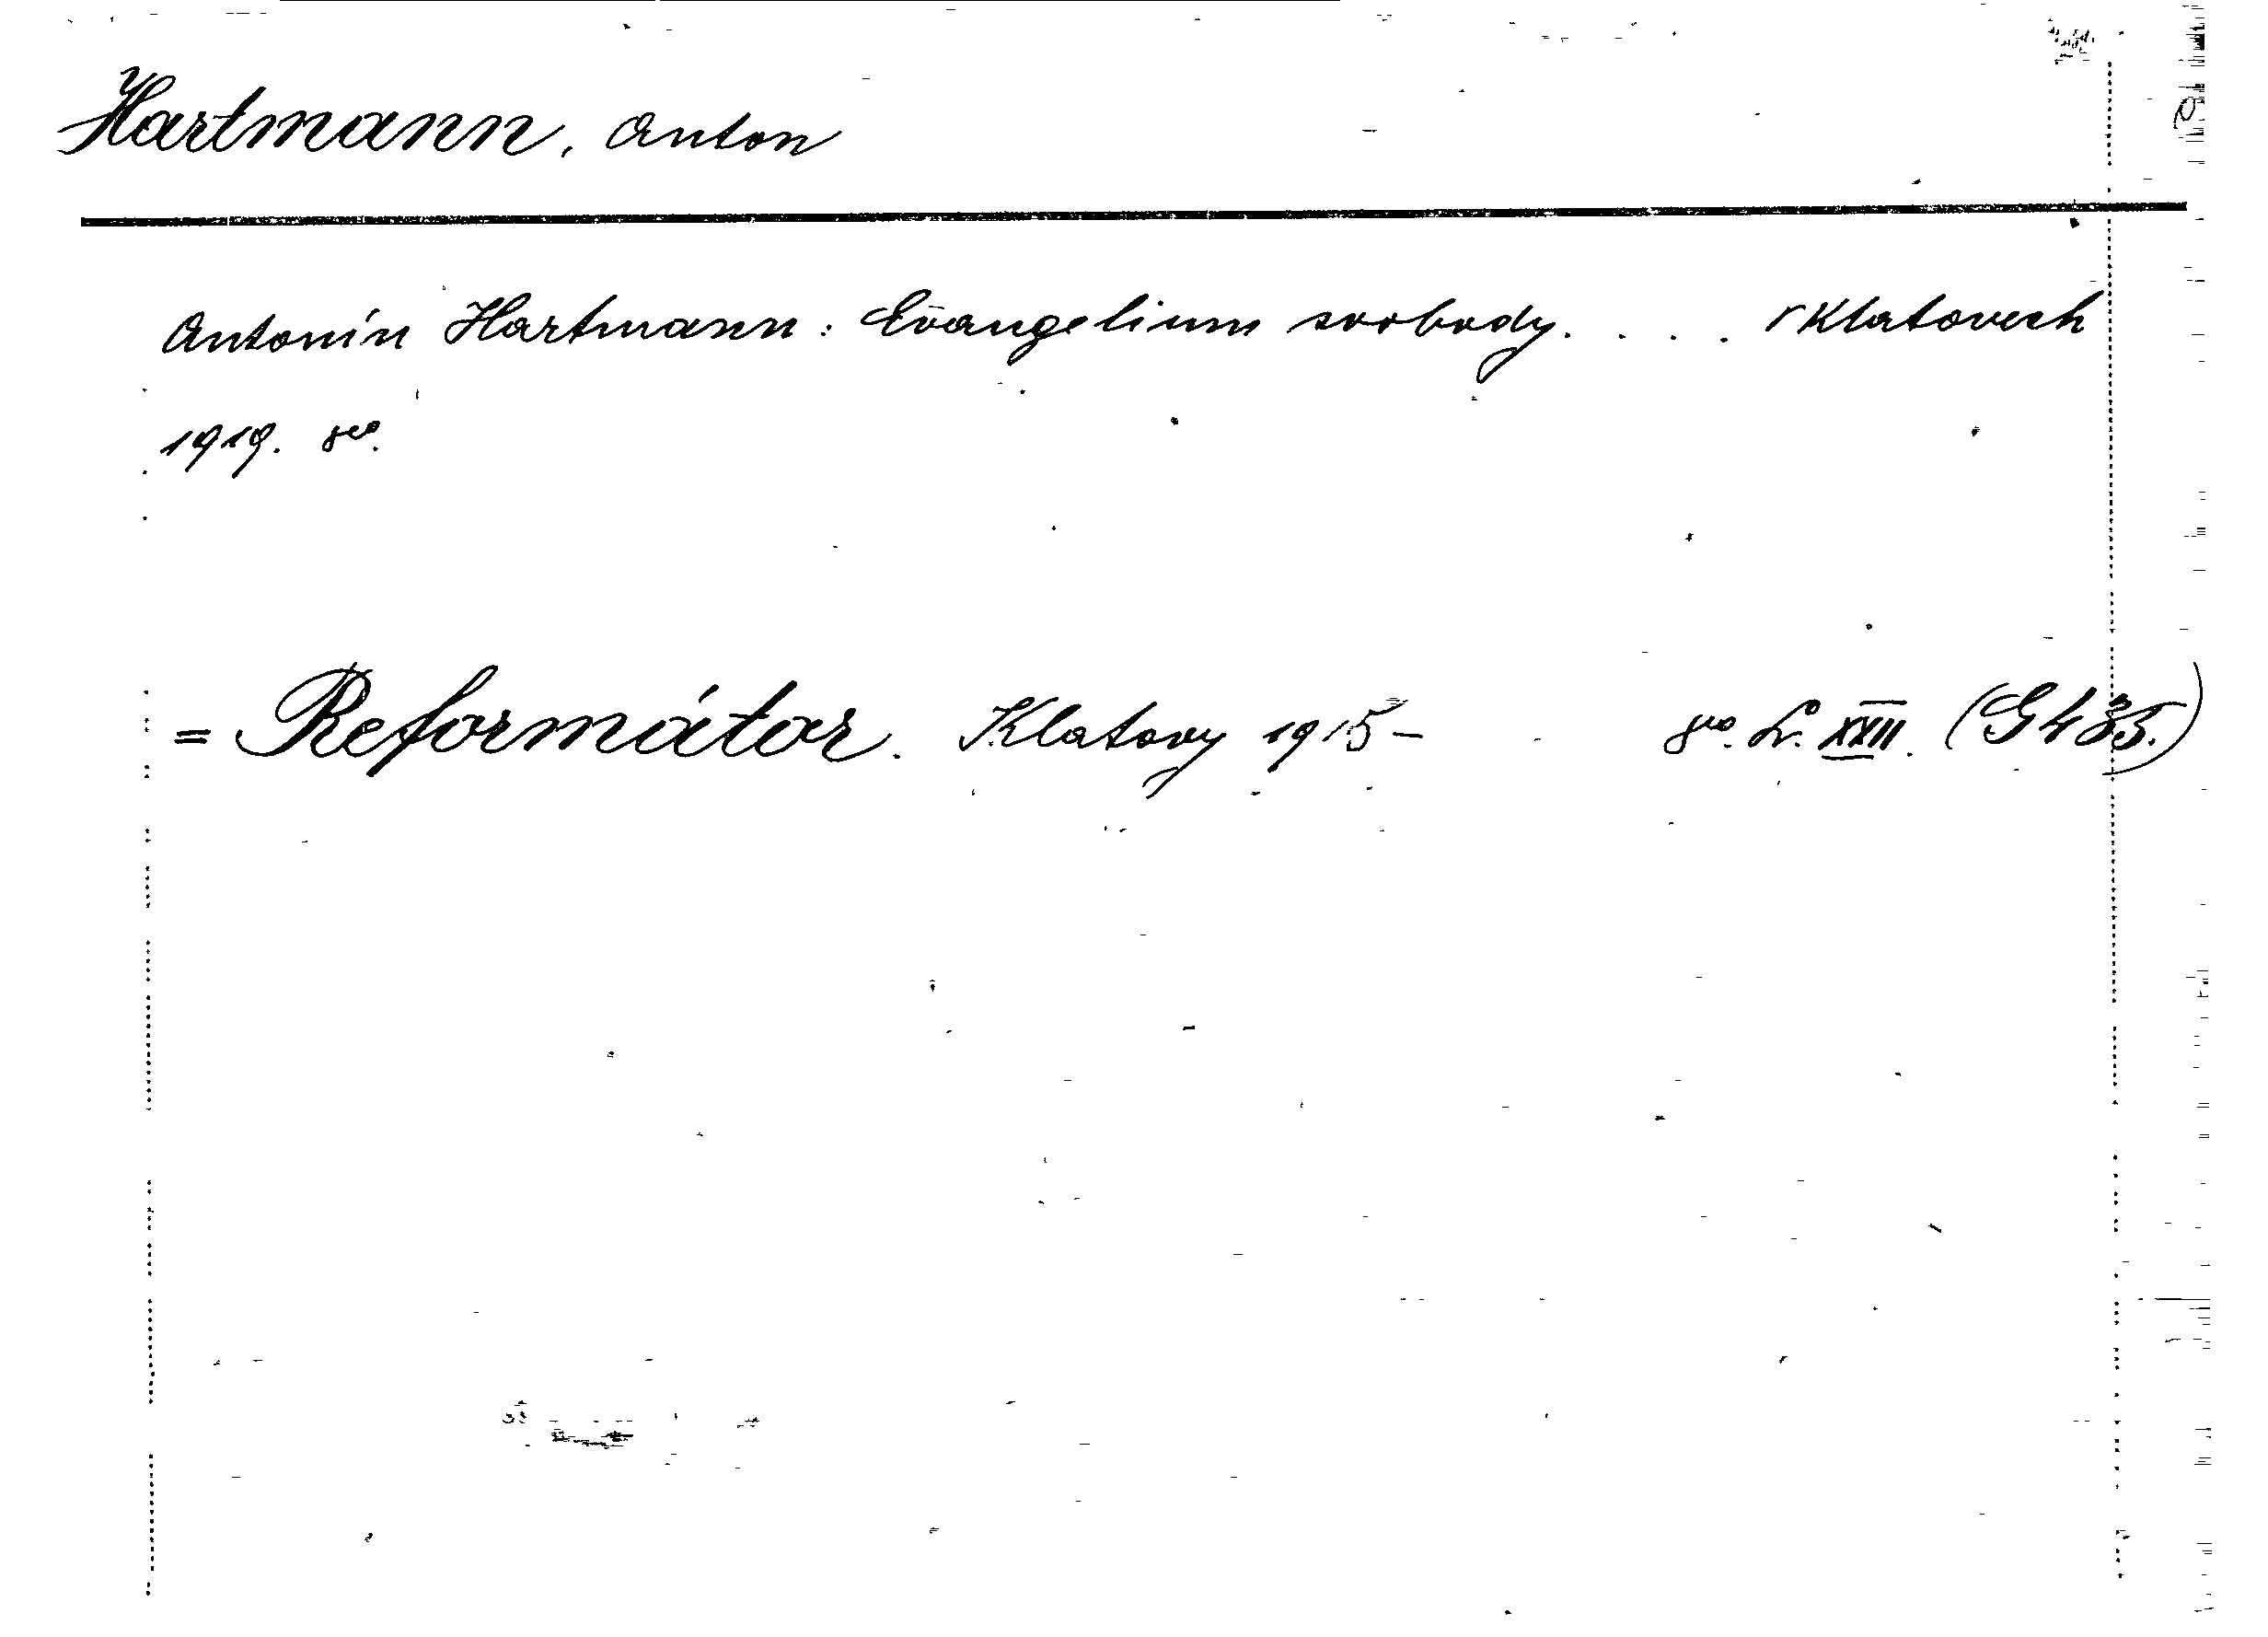 Hartmann, Anton
Antonín Hartmann: Evangelium svobody. . . . v Klatovech
1919. 8vo.
= Reformátor. Klatovy 1915- 8vo. Lº. XXII. (G 435.)